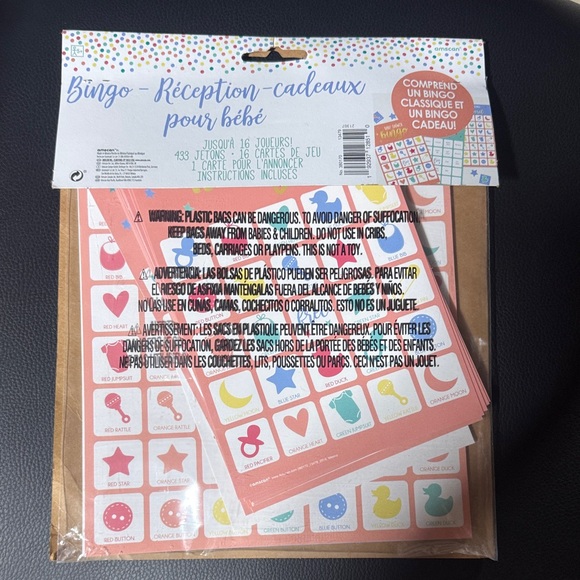 amscan
Bingo - Réception-cadeaux
pour bébé
JUSQU'À 16 JOUEURS!
433 JETONS • 16 CARTES DE JEU
1 CARTE POUR L'ANNONCER
INSTRUCTIONS INCLUSES
COMPREND
UN BINGO
CLASSIQUE ET
UN BINGO
CADEAU!
bingo
WARNING: PLASTIC BAGS CAN BE DANGEROUS. TO AVOID DANGER OF SUFFOCATION
KEEP BAGS AWAY FROM BABIES & CHILDREN. DO NOT USE IN CRIBS,
BEDS, CARRIAGES OR PLAYPENS. THIS IS NOT A TOY.
ADVERTENCIA: LAS BOLSAS DE PLÁSTICO PUEDEN SER PELIGROSAS. PARA EVITAR
EL RIESGO DE ASFIXIA MANTÉNGALAS FUERA DEL ALCANCE DE BEBES Y NIÑOS.
NO LAS USE EN CUNAS, CAMAS, COCHECITOS O CORRALITOS. ESTO NO ES UN JUGUETE.
AVERTISSEMENT: LES SACS EN PLASTIQUE PEUVENT ÊTRE DANGEREUX. POUR ÉVITER LES
DANGERS DE SUFFOCATION, GARDEZ LES SACS HORS DE LA PORTÉE DES BÉBÉS ET DES ENFANTS.
NE PAS UTILISER DANS LES COUCHETTES, LITS, POUSSETTES OU PARCS. CECI N'EST PAS UN JOUET.
RED BIB
RED HEART
RED JUMPSUIT
RED RATTLE
ORANGE RATTLE
RED STAR
ORANGE STAR
RED BUTTON
BLUE STAR
RED DUCK
ORANGE MOON
RED PACIFIER
ORANGE HEART
GREEN JUMPSUIT
GREEN BUTTON
BLUE BUTTON